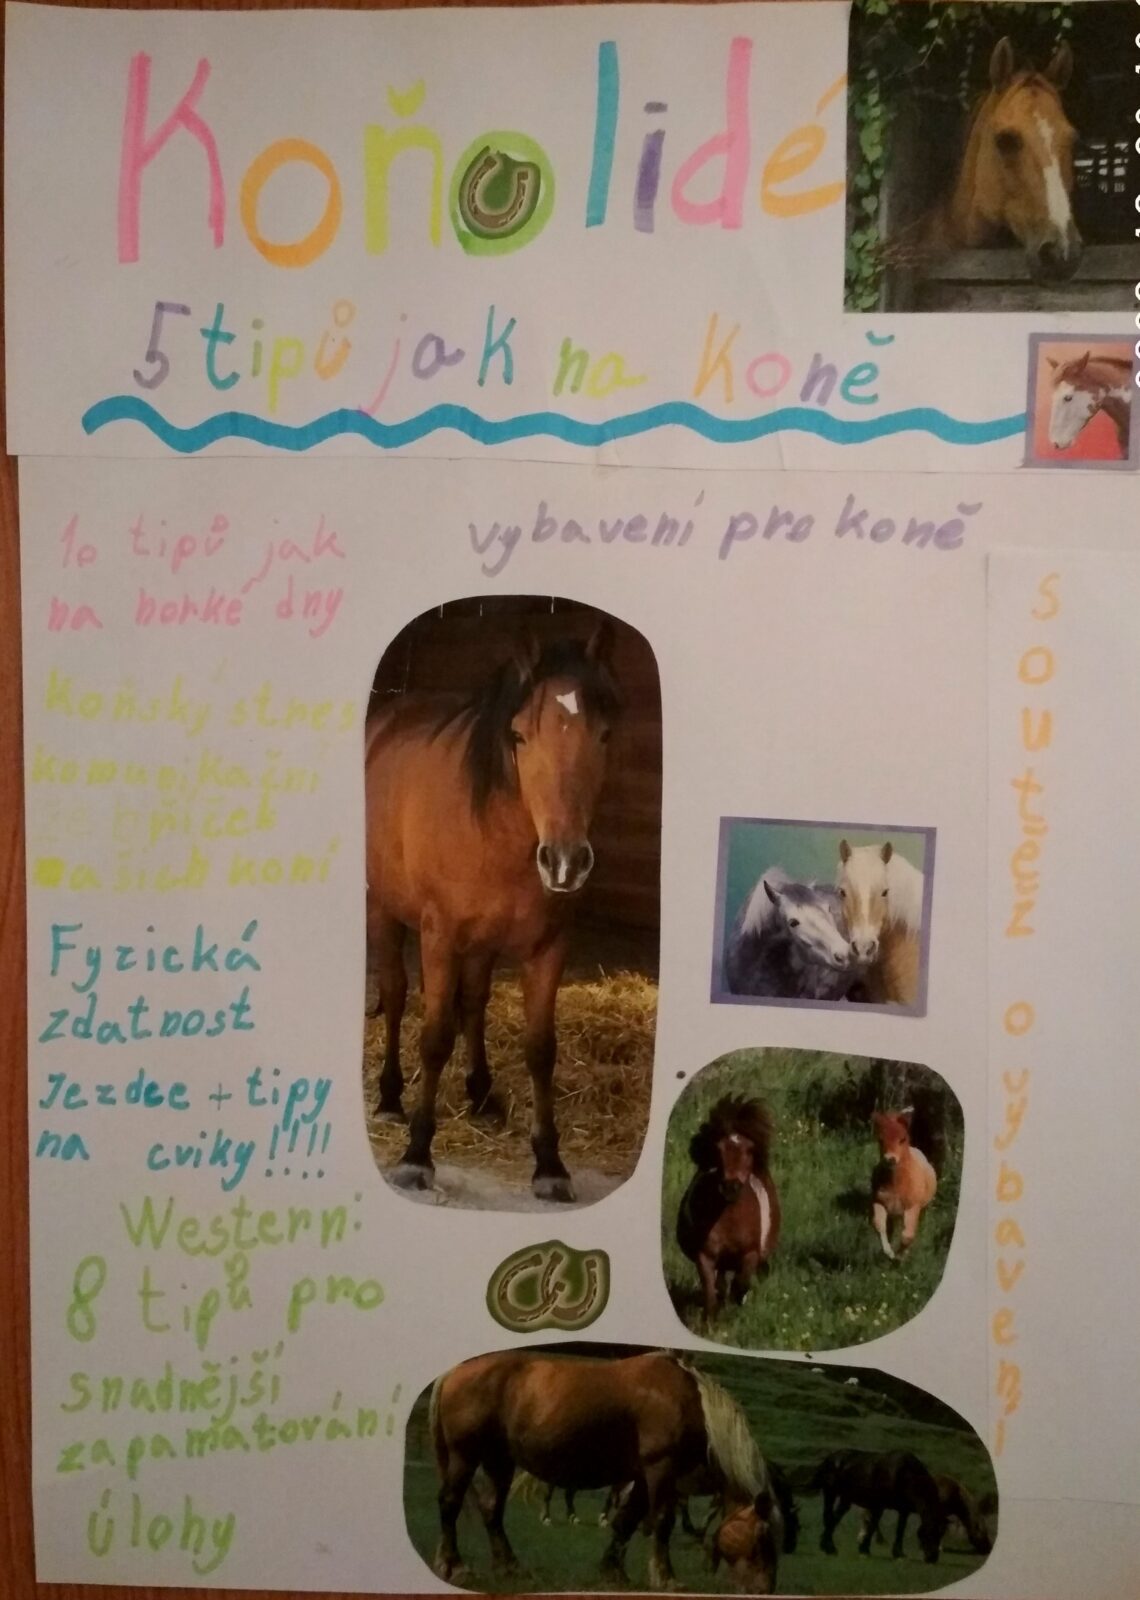 Koňolidé
5 tipů jak na koně
vybavení pro koně
10 tipů jak
na horké dny
Koňský stres
komunikační
žebříček
našich koní
Fyzická
zdatnost
Jezdce + tipy
na cviky!!!!
Western:
8 tipů pro
snadnější
zapamatování
úlohy
soutěž o vybavení